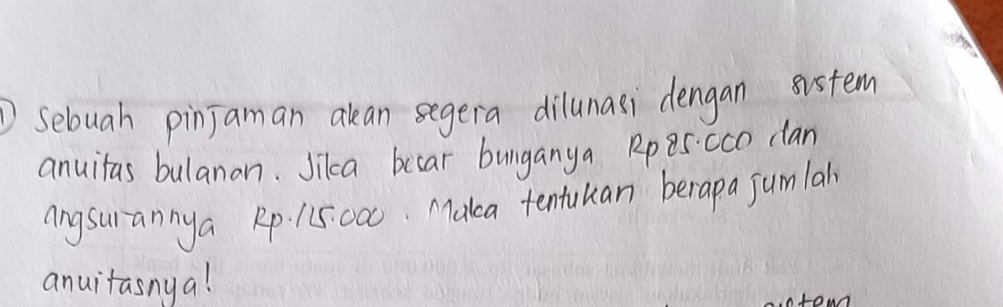 1) Sebuah pinjaman akan segera dilunasi dengan system
anuitas bulanan. Jika besar bunganya Rp 85.000 dan
angsurannya Rp. 115.000. Maka tentukan berapa jumlah
anuitasnya!